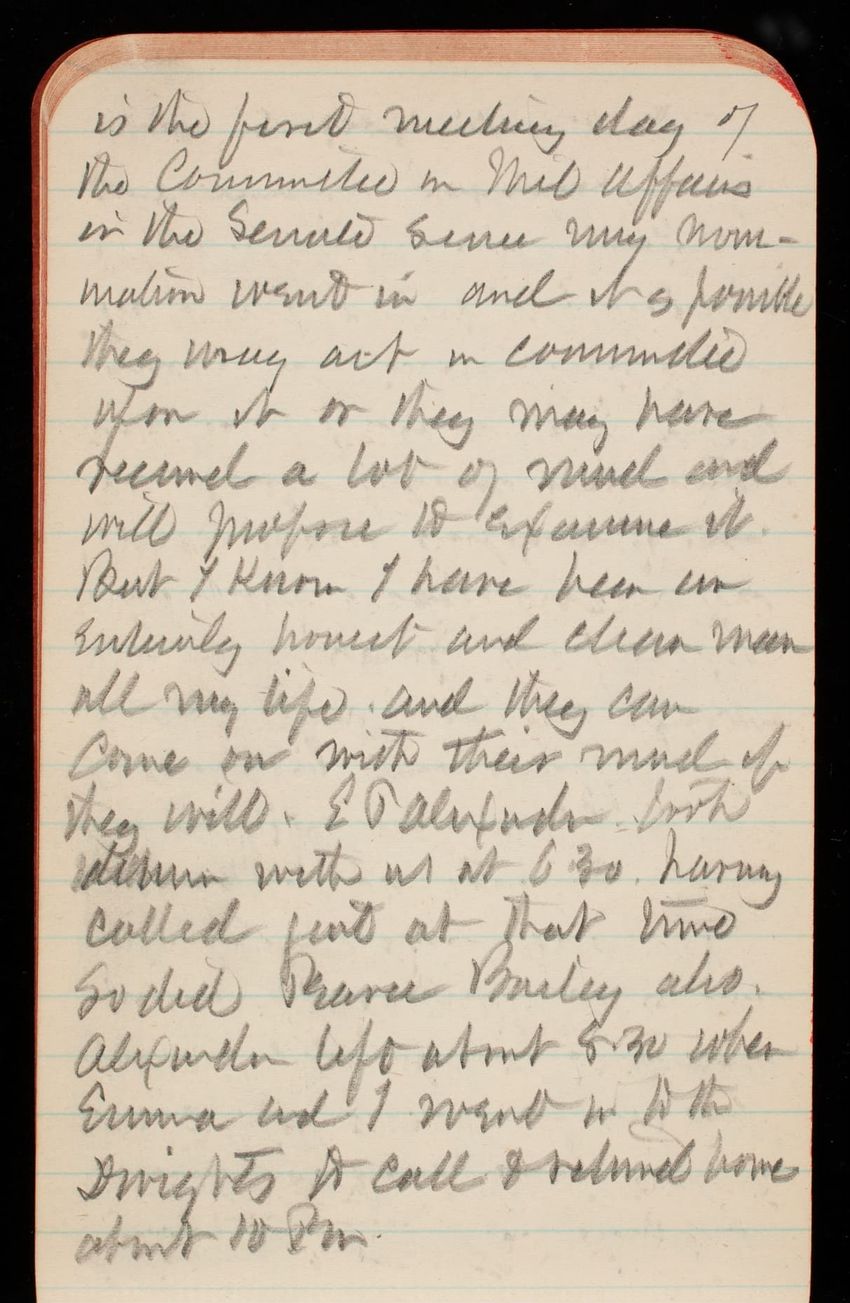 is the first meeting day of
the Committee on Mil Affairs
in the Senate since my nom-
ination went in and it is possible
they may act in committee
upon it or they may have
received a lot of mud and
will propose to examine it.
But I know I have been an
entirely honest and clean man
all my life. and they can
come on with their mud if
they will. E P Alexander took
dinner with us at 6 30. having
called just at that time
So did Pearce Bailey also.
Alexander left about 8.30 when
Emma and I went in to the
Dwights to call & returned home
about 10 Pm.